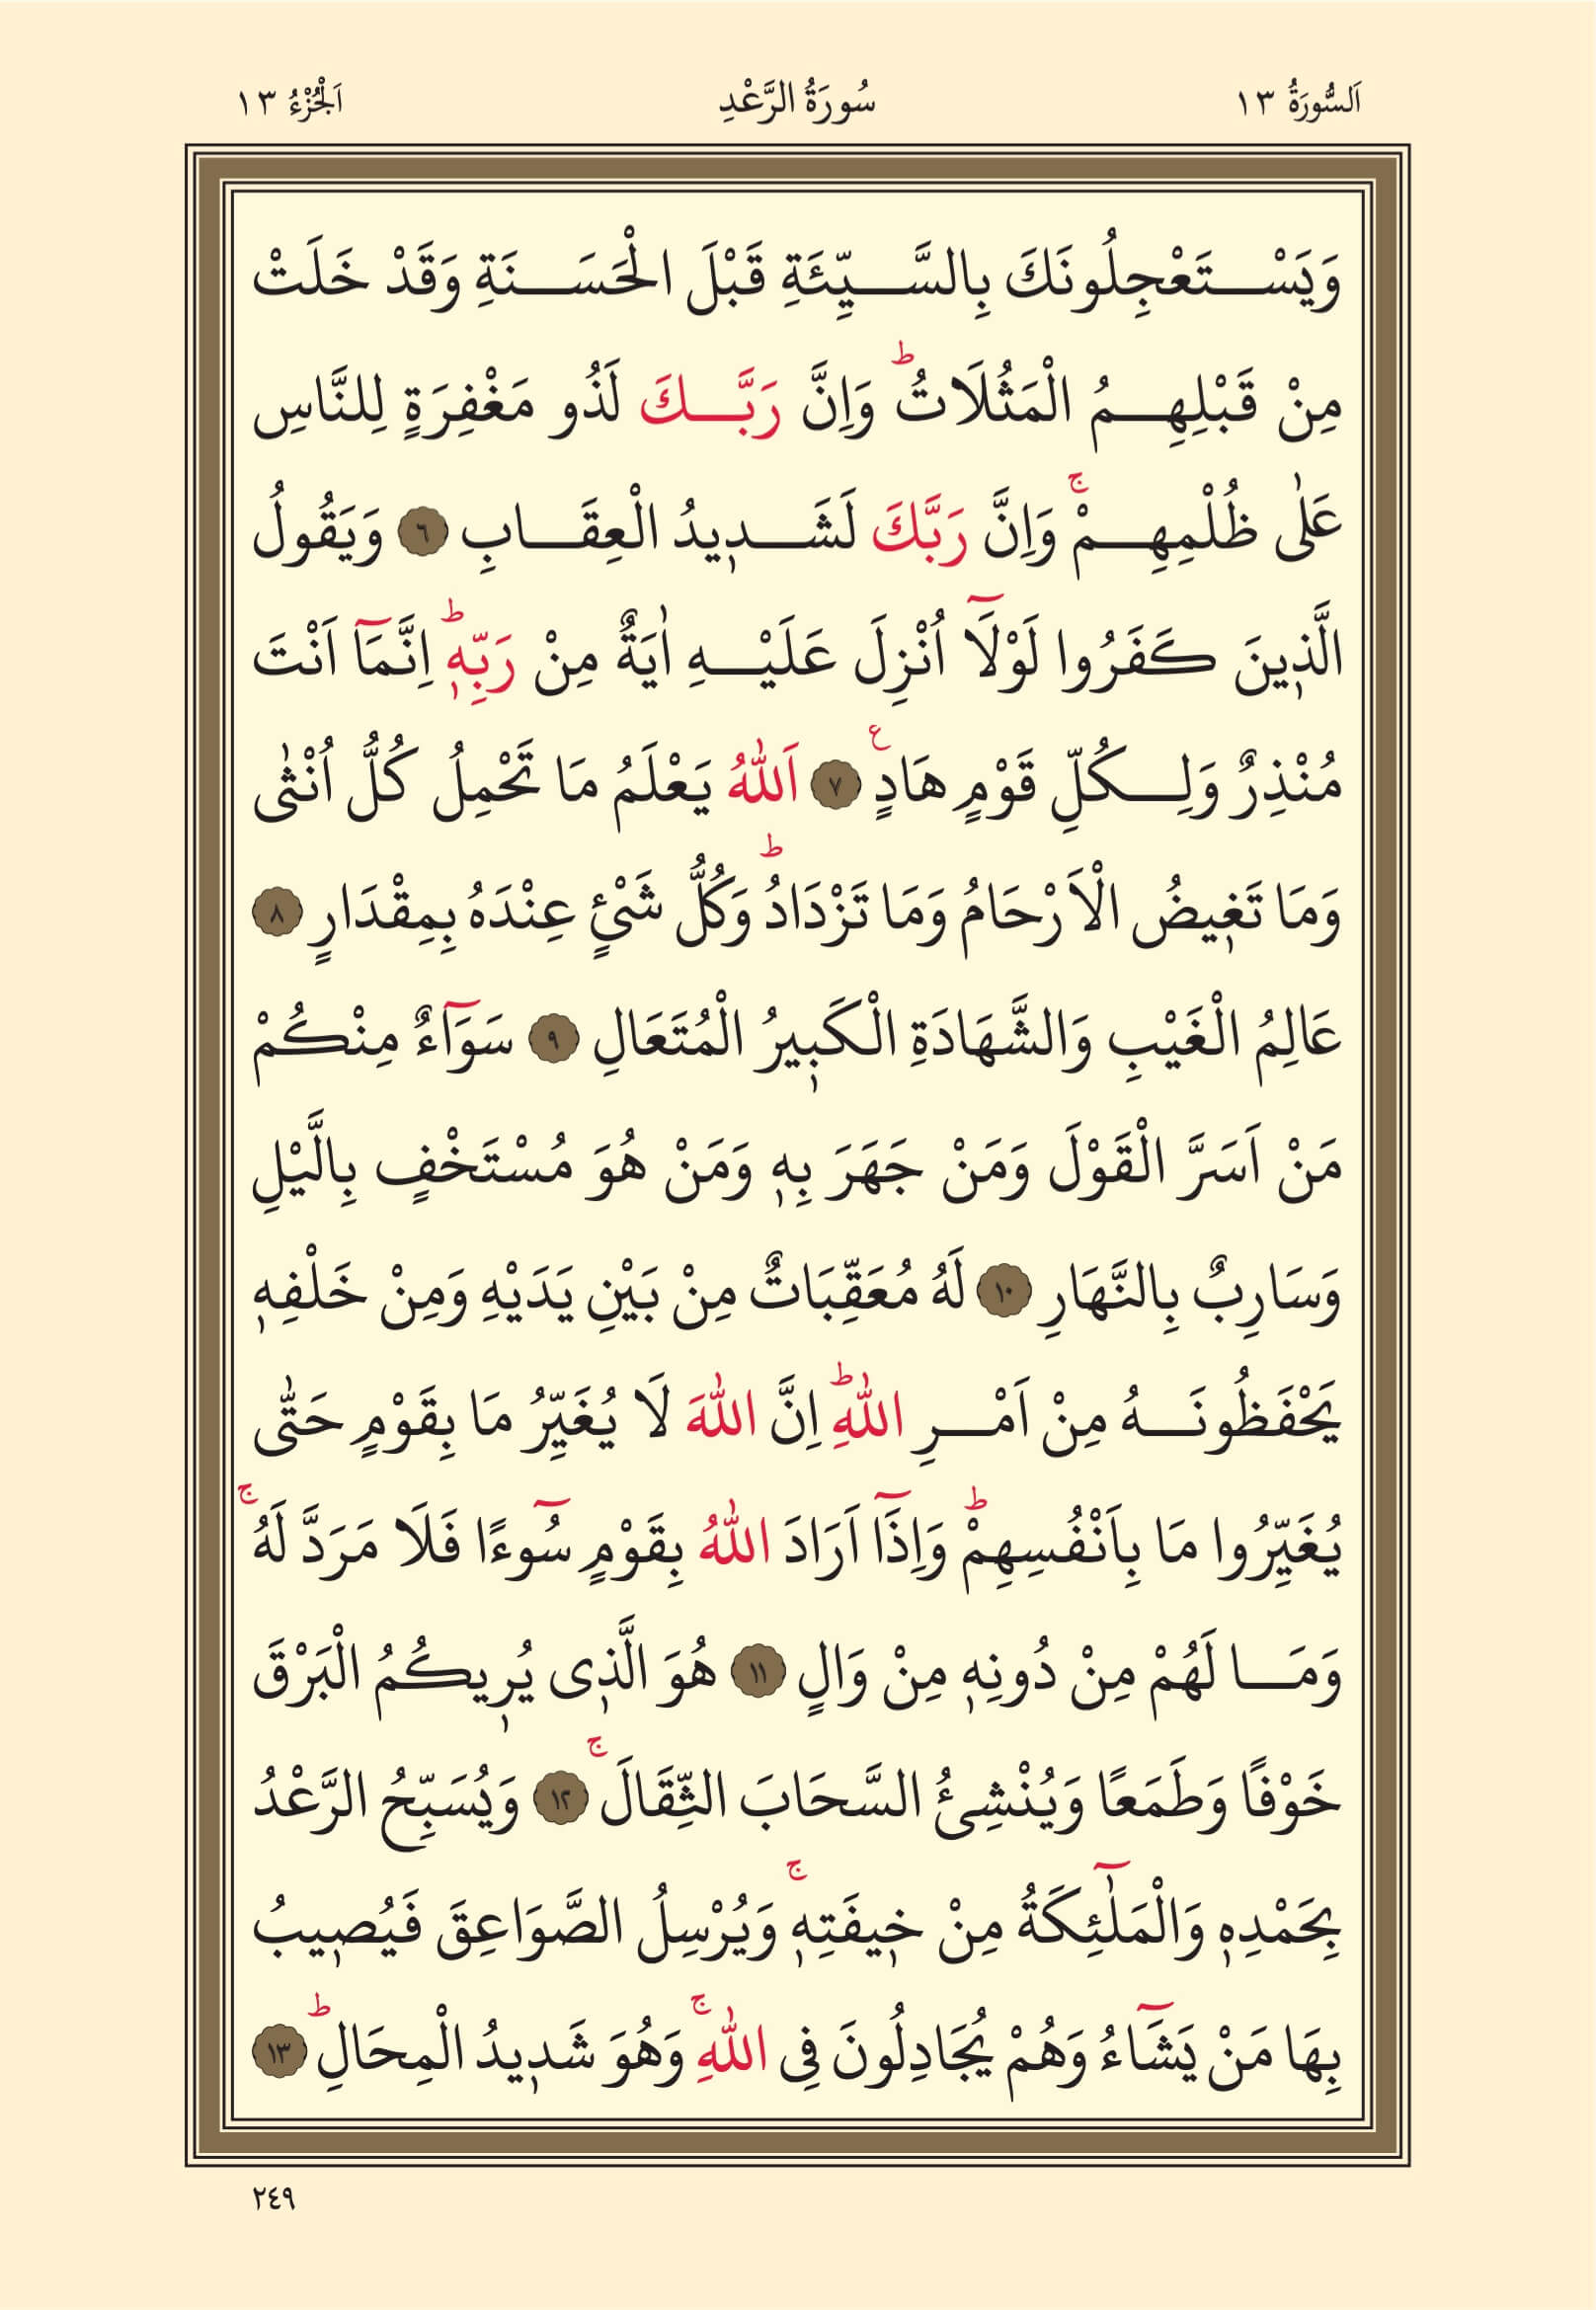 اَلسُّورَةُ ١٣ سُورَةُ الرَّعْدِ اَلْجُزْءُ ١٣
وَيَسْتَعْجِلُونَكَ بِالسَّيِّئَةِ قَبْلَ الْحَسَنَةِ وَقَدْ خَلَتْ
مِنْ قَبْلِهِمُ الْمَثُلَاتُ ؕ وَاِنَّ رَبَّكَ لَذُو مَغْفِرَةٍ لِلنَّاسِ
عَلٰى ظُلْمِهِمْ ۚ وَاِنَّ رَبَّكَ لَشَد۪يدُ الْعِقَابِ ٦ وَيَقُولُ
الَّذ۪ينَ كَفَرُوا لَوْلَٓا اُنْزِلَ عَلَيْهِ اٰيَةٌ مِنْ رَبِّه۪ ؕ اِنَّمَٓا اَنْتَ
مُنْذِرٌ وَلِكُلِّ قَوْمٍ هَادٍ ع ٧ اَللّٰهُ يَعْلَمُ مَا تَحْمِلُ كُلُّ اُنْثٰى
وَمَا تَغ۪يضُ الْاَرْحَامُ وَمَا تَزْدَادُ ؕ وَكُلُّ شَيْئٍ عِنْدَهُ بِمِقْدَارٍ ٨
عَالِمُ الْغَيْبِ وَالشَّهَادَةِ الْكَب۪يرُ الْمُتَعَالِ ٩ سَوَٓاءٌ مِنْكُمْ
مَنْ اَسَرَّ الْقَوْلَ وَمَنْ جَهَرَ بِه۪ وَمَنْ هُوَ مُسْتَخْفٍ بِالَّيْلِ
وَسَارِبٌ بِالنَّهَارِ ١٠ لَهُ مُعَقِّبَاتٌ مِنْ بَيْنِ يَدَيْهِ وَمِنْ خَلْفِه۪
يَحْفَظُونَهُ مِنْ اَمْرِ اللّٰهِ ؕ اِنَّ اللّٰهَ لَا يُغَيِّرُ مَا بِقَوْمٍ حَتّٰى
يُغَيِّرُوا مَا بِاَنْفُسِهِمْ ؕ وَاِذَٓا اَرَادَ اللّٰهُ بِقَوْمٍ سُٓوءًا فَلَا مَرَدَّ لَهُ ۚ
وَمَا لَهُمْ مِنْ دُونِه۪ مِنْ وَالٍ ١١ هُوَ الَّذ۪ى يُر۪يكُمُ الْبَرْقَ
خَوْفًا وَطَمَعًا وَيُنْشِئُ السَّحَابَ الثِّقَالَ ۚ ١٢ وَيُسَبِّحُ الرَّعْدُ
بِحَمْدِه۪ وَالْمَلٰٓئِكَةُ مِنْ خ۪يفَتِه۪ ۚ وَيُرْسِلُ الصَّوَاعِقَ فَيُص۪يبُ
بِهَا مَنْ يَشَٓاءُ وَهُمْ يُجَادِلُونَ فِى اللّٰهِ ۚ وَهُوَ شَد۪يدُ الْمِحَالِ ؕ ١٣
٢٤٩